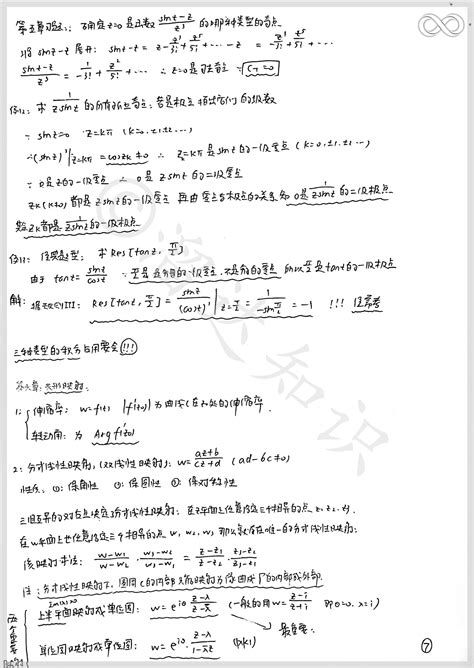 第五章习题: 1. 确定z=0是函数 (sinz-z)/z³ 的哪种类型的奇点
将 sinz-z 展开: sinz-z = z - z³/3! + z⁵/5! + ⋯ - z = -z³/3! + z⁵/5! + ⋯
(sinz-z)/z³ = -1/3! + z²/5! + ⋯ ∴ z=0是可去奇点 C₋₁=0
例2: 求 1/(z sinz) 的所有孤立奇点; 若是极点指出它们的级数
∵ sinz=0 z=kπ (k=0, ±1, ±2 ⋯)
∴ (sinz)'|z=kπ = coskπ ≠0 ∴ zk=kπ是sinz的一级零点 (k=0, ±1, ±2 ⋯)
∵ 0是z的一级零点 ∴ 0是zsinz的二级零点
zk(k≠0)都是zsinz的一级零点 再由零点与极点的关系知 0是 1/(zsinz) 的二级极点
zk都是 1/(zsinz) 的一级极点
例3: 经典题型: 求 Res[tanz, π/2]
由于 tanz = sinz/cosz ∵ π/2是分母的一级零点, 不是分子的零点 所以π/2是tanz的一级极点
解: Res[tanz, π/2] = sinz/(cosz)' | z=π/2 = 1/(-sin π/2) = -1 !!! 经常考
三种类型的积分应用要会 !!!
第六章: 共形映射:
1: { 伸缩率: w=f(z) |f'(z₀)| 为曲线C在z₀处的伸缩率
转动角: 为 Argf'(z₀)
2: 分式线性映射, (双线性映射): w = (az+b)/(cz+d) (ad-bc≠0)
性质: ①: 保角性 ②: 保圆性 ③: 保对称性
三组互异的对应点决定分式线性映射: 在z平面上任意给定三个相异的点 z₁, z₂, z₃,
在w平面上也任意给定三个相异的点 w₁, w₂, w₃ 那么就存在唯一的分式线性映射:
该映射求法: (w-w₁)/(w-w₂) · (w₃-w₂)/(w₃-w₁) = (z-z₁)/(z-z₂) · (z₃-z₂)/(z₃-z₁)
注: 分式线性映射下, 圆周C的内部映射为像曲线Γ的内部或外部.
Im(λ)>0
两个重要 { 上半平面映射成单位圆: w = e^{iθ} (z-λ)/(z-λ̄) (一般的用 w = (z-i)/(z+i) 即θ=0, λ=i)
最重要
单位圆映射成单位圆: w = e^{iθ} · (z-λ)/(1-λ̄z) (|λ|<1)
⑦
知识